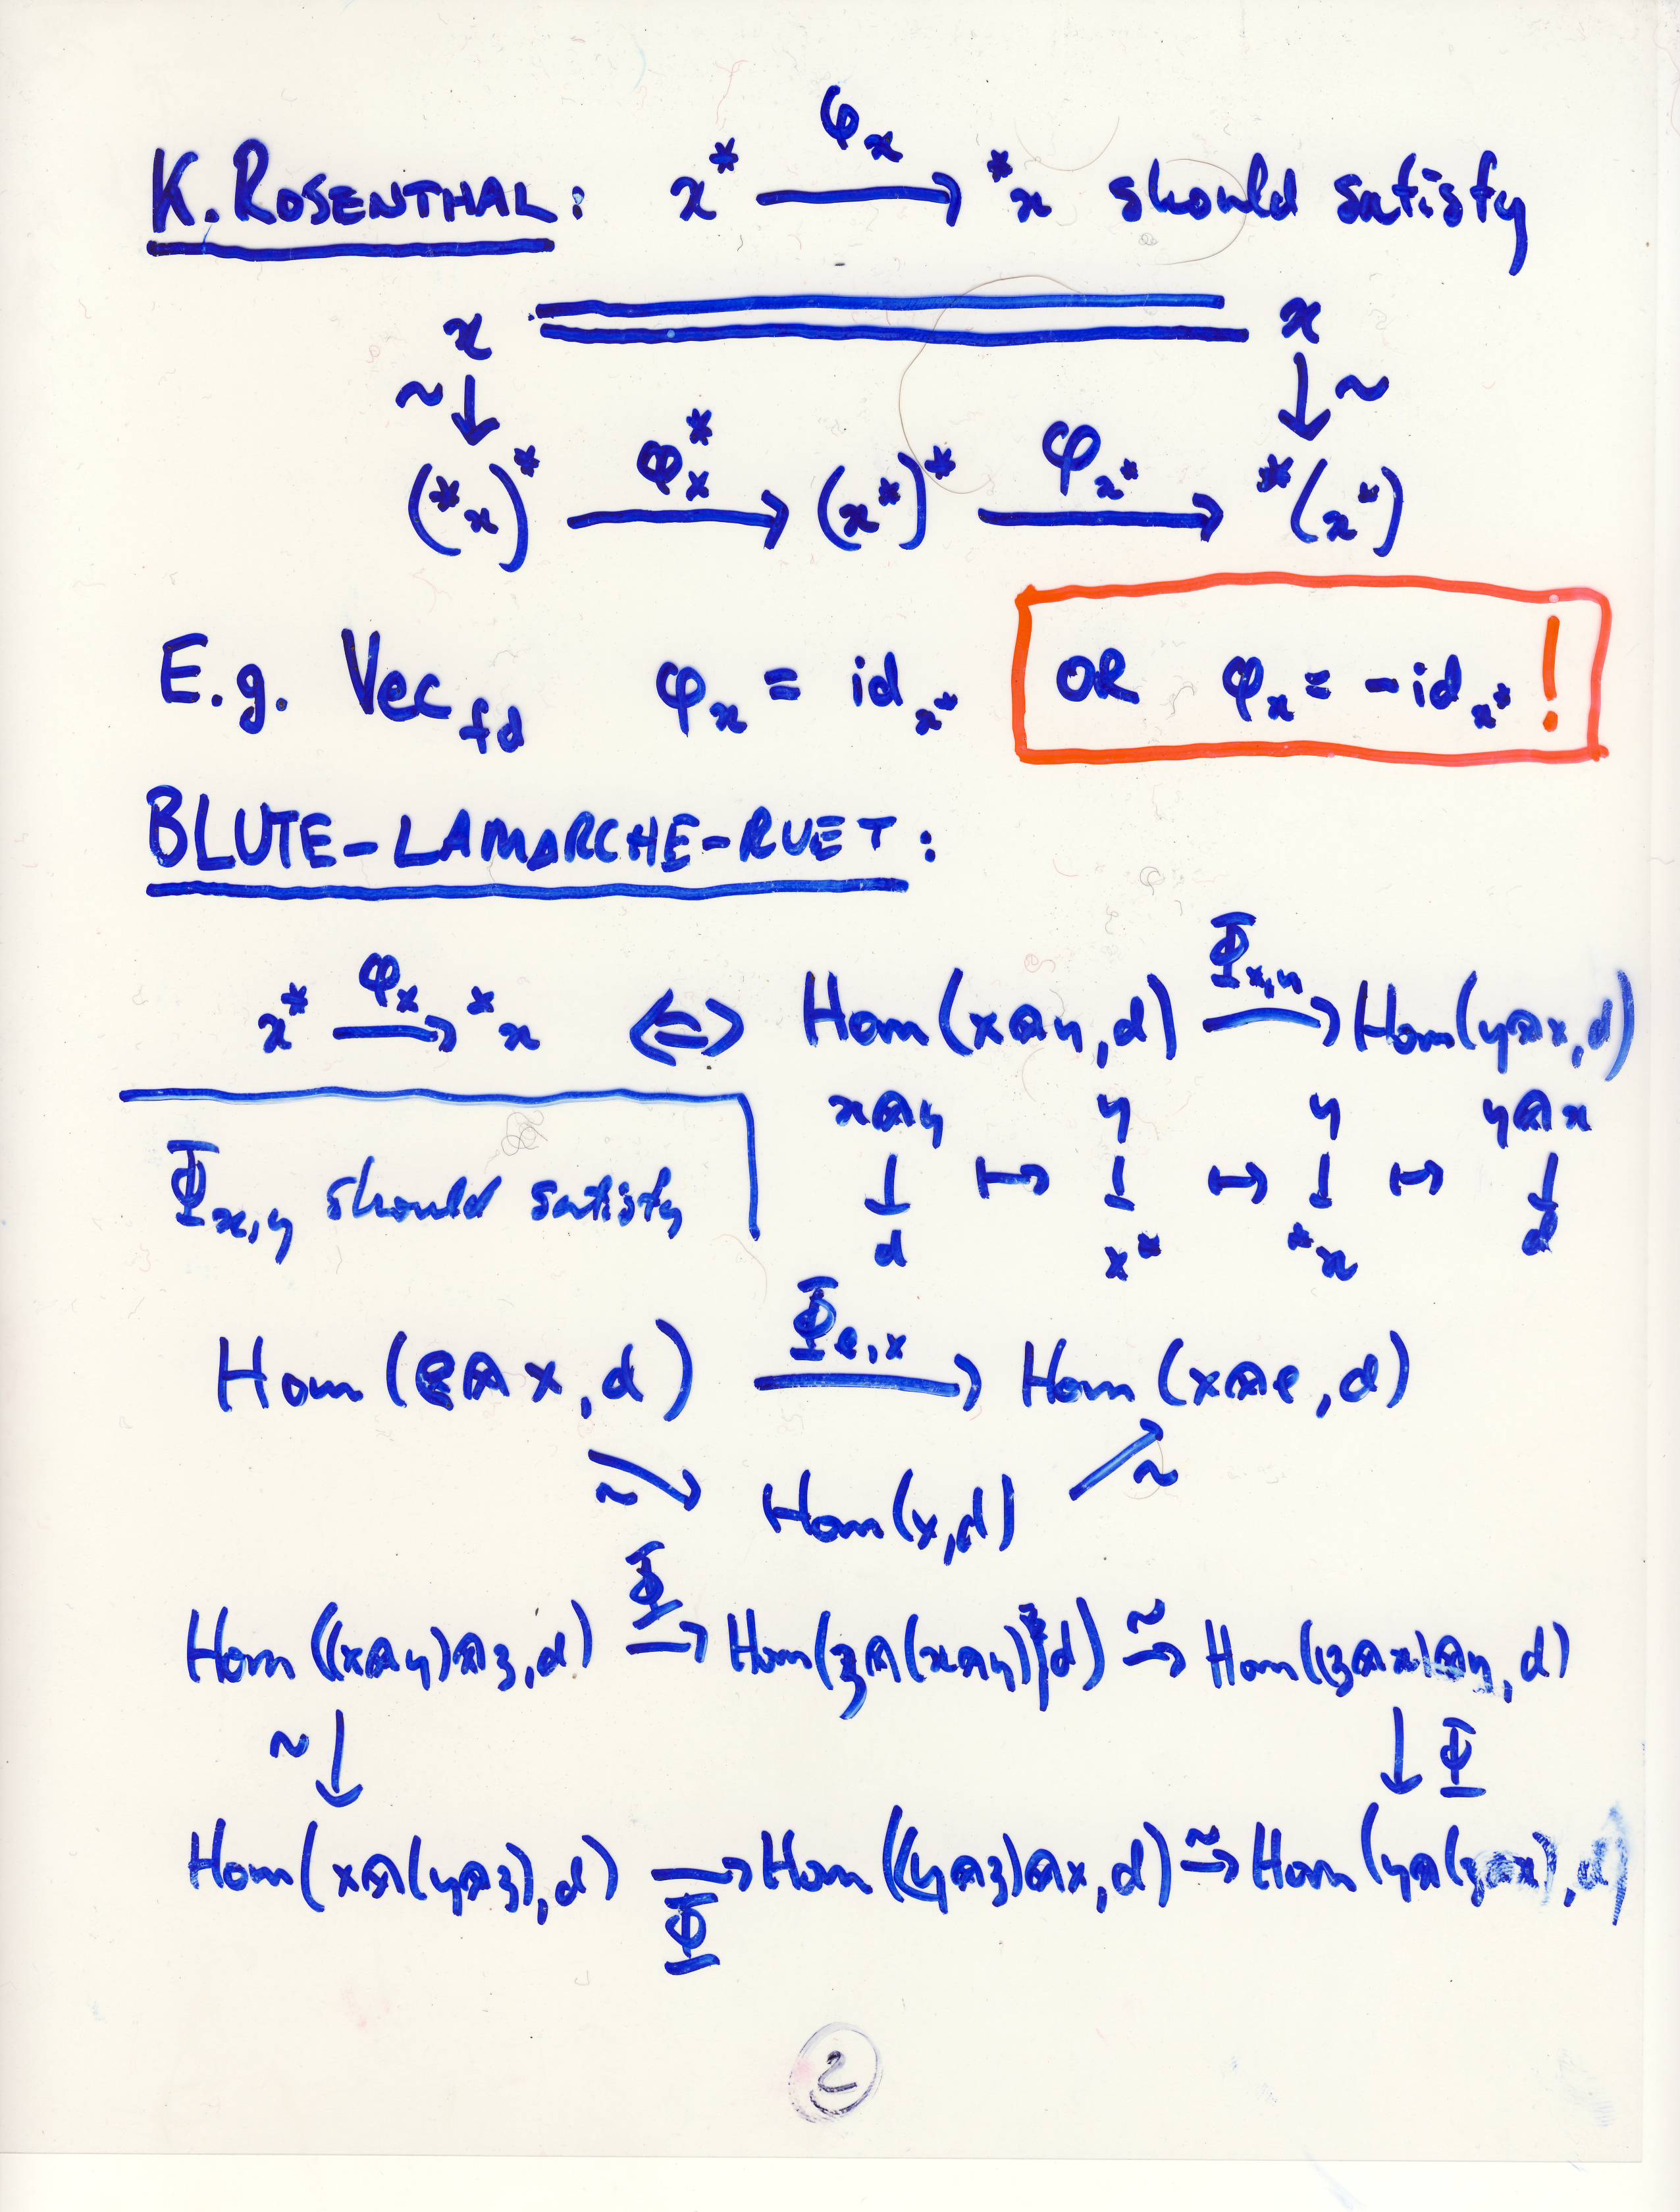 K. ROSENTHAL: x* —φ_x→ *x should satisfy
x ═══ x
~↓ ↓~
(*x)* —φ_x*→ (x*)* —φ_x*→ *(x*)
E.g. Vec_fd φ_x = id_x* OR φ_x = -id_x* !
BLUTE-LAMARCHE-RUET:
x* —φ_x→ *x ⇔ Hom(x⊗y, d) —Φ_x,y→ Hom(y⊗x, d)
x⊗y y y y⊗x
↓ ↦ ↓ ↦ ↓ ↦ ↓
d x* *x d
Φ_x,y should satisfy
Hom(e⊗x, d) —Φ_e,x→ Hom(x⊗e, d)
~↘ Hom(x,d) ↗~
Hom((x⊗y)⊗z, d) —Φ→ Hom(z⊗(x⊗y), d) ~→ Hom((z⊗x)⊗y, d)
~↓ ↓Φ
Hom(x⊗(y⊗z), d) —Φ→ Hom((y⊗z)⊗x, d) ~→ Hom(y⊗(z⊗x), d)
2